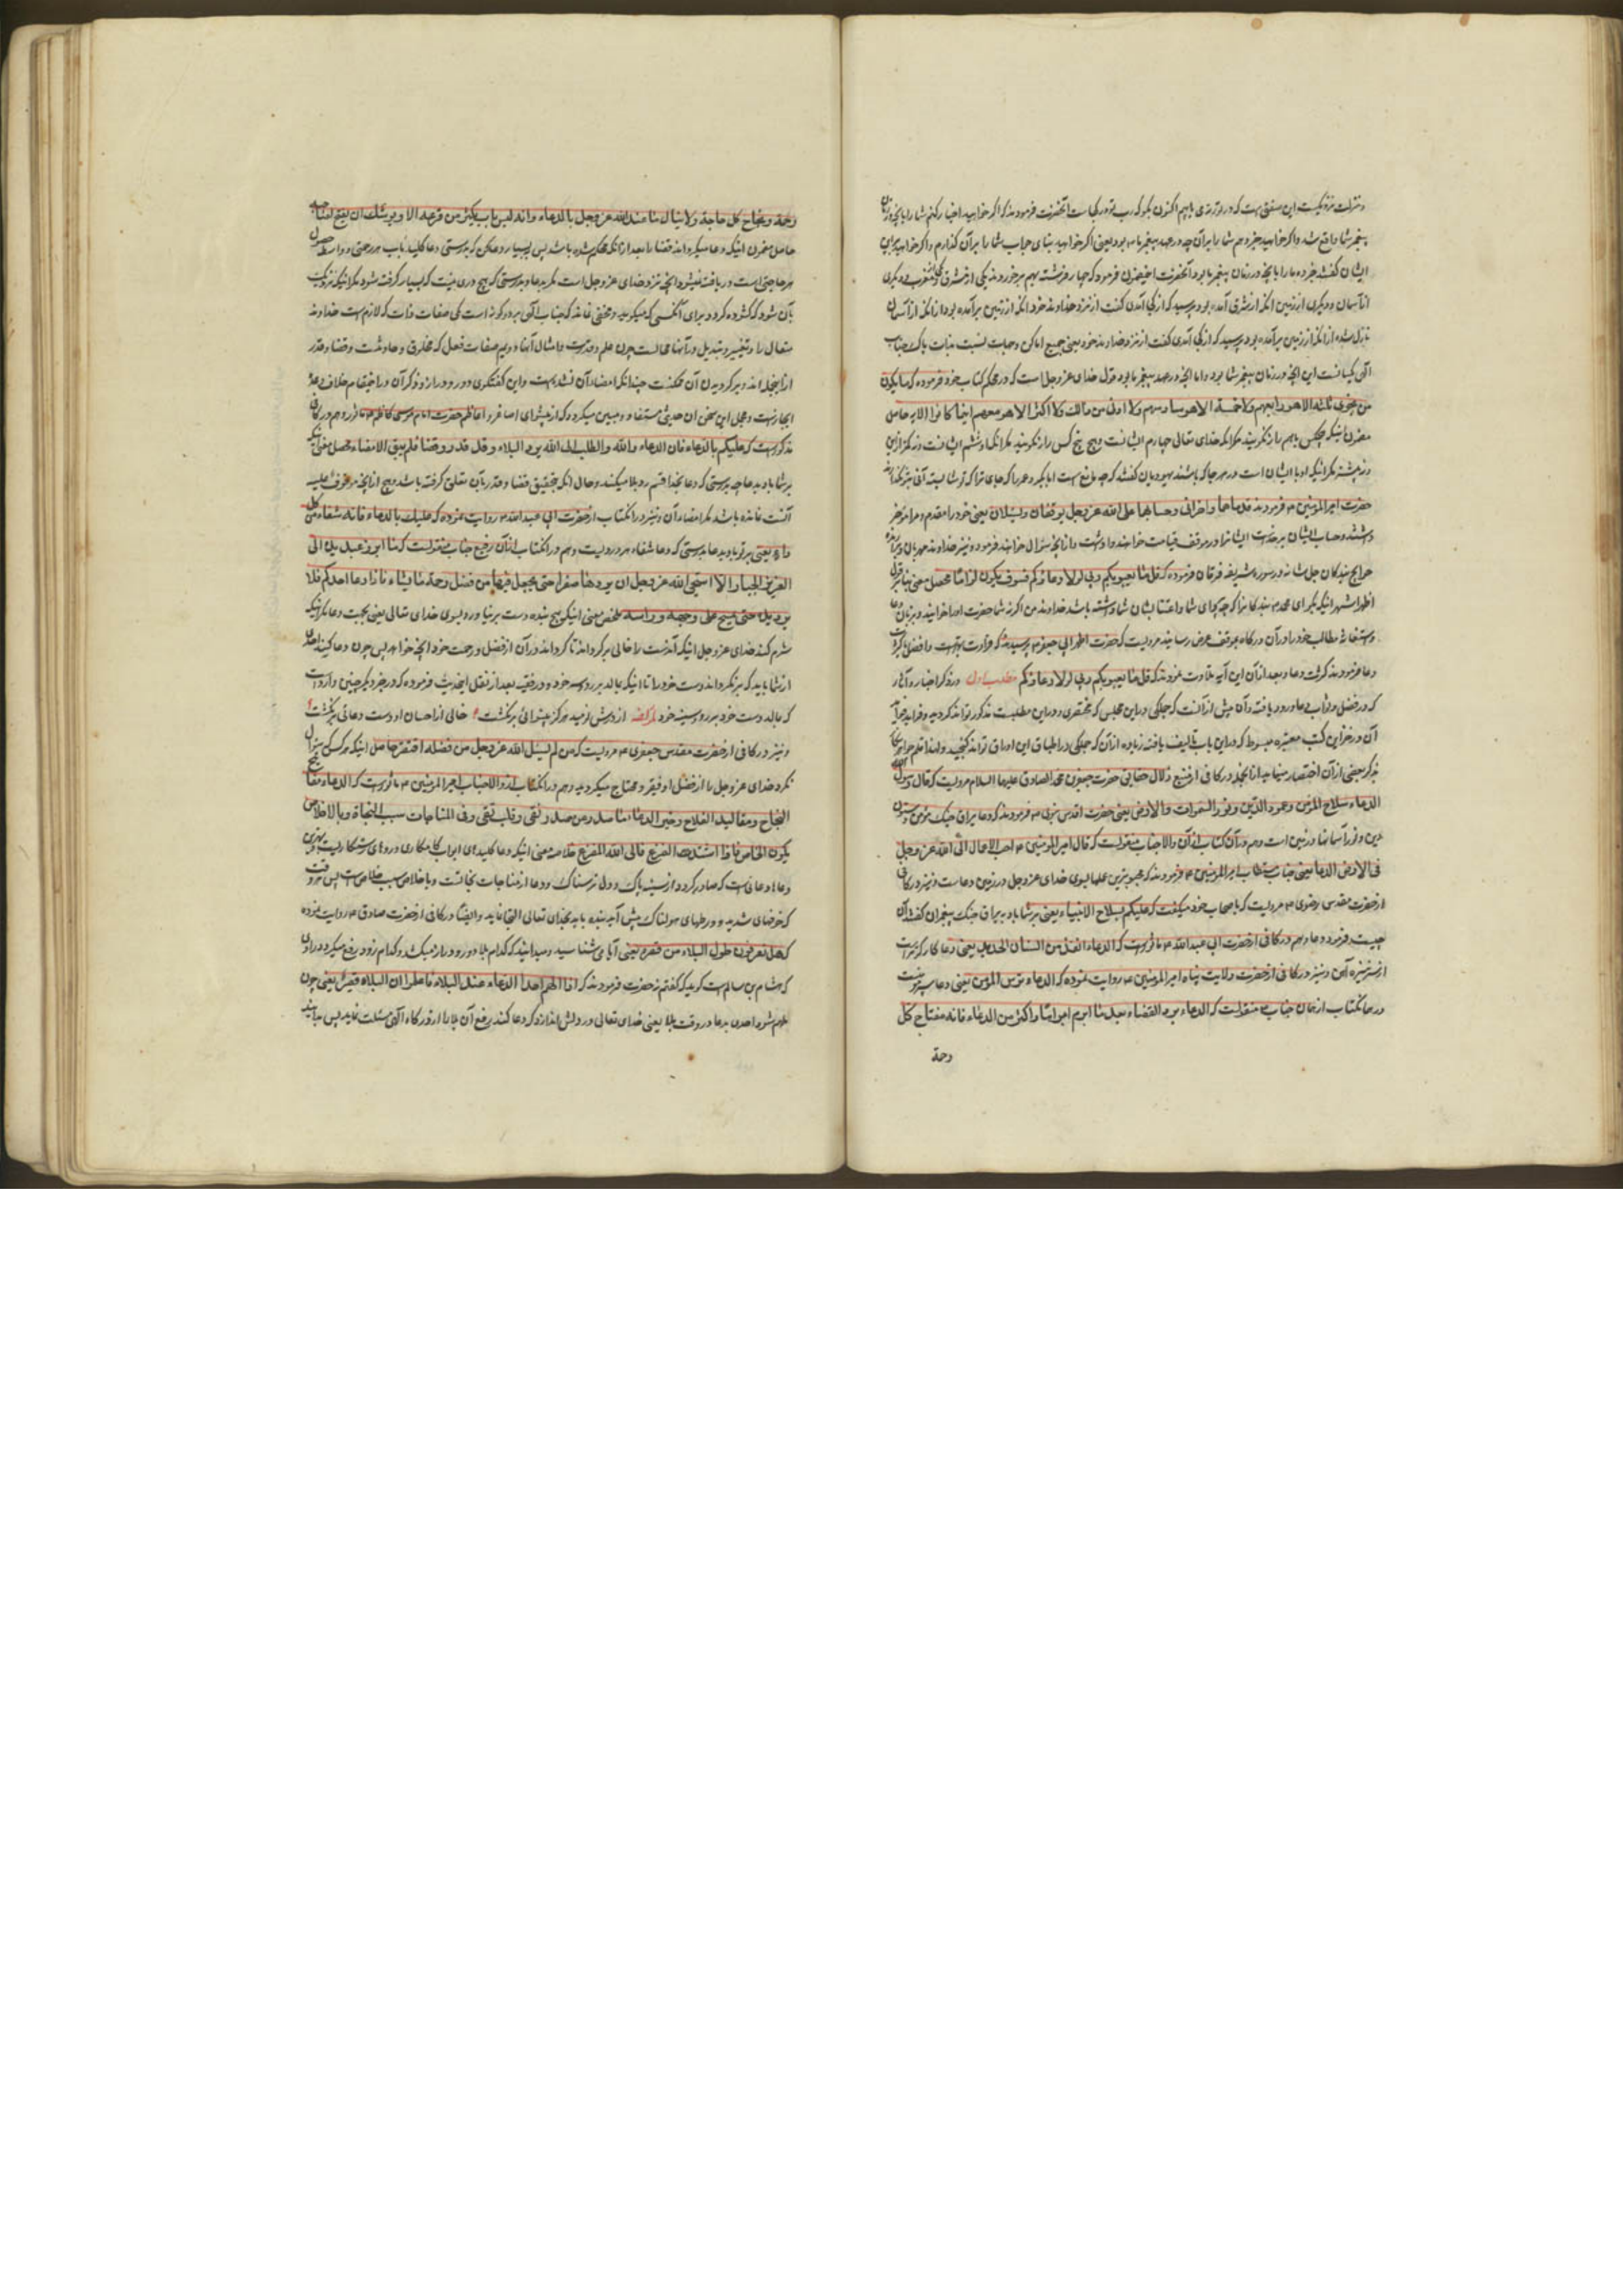 و منزلت نزدیکست این سنتی است که در تورته می یابیم اکنون بگو که رب تو در کجاست آنحضرت فرمودند که اگر خواهید اخبار کنم شما را بانچه در زمان
پیغمبر شما واقع شد و اگر خواهید خبر دهم شما را بر آن چه در عهد پیغمبر ما بود یعنی اگر خواهید بنای جواب شما را بر آن گذارم و اگر خواهید برین
ایشان گفتند خبر ده ما را بانچه در زمان پیغمبر ما بود آنحضرت فرمود که چهار فرشته بهم برخوردند یکی از مشرق و یکی از مغرب و دیگری
از آسمان و دیگری از زمین انکه از مشرق آمده بود پرسید که از کجا آمدی گفت از نزد خداوند خود انکه از زمین برآمده بود از انکه از آسمان
نازل شده از انکه از زمین برآمده بود پرسید که از کجا آمدی گفت از نزد خداوند خود یعنی جمیع اماکن و جهات نسبت بذات پاک جناب
الهی یکسانست این انچه در زمان پیغمبر شما بود و اما انچه در عهد پیغمبر ما بود قول خدای عزوجل است که در محکم کتاب خود فرموده که ما یکون
من نجوی ثلثة الا هو رابعهم ولا خمسة الا هو سادسهم ولا ادنی من ذالک ولا اکثر الا هو معهم اینما کانوا الایه حاصل
مضمون اینکه هیچکس باهم راز نگویند مگر انکه خدای تعالی چهارم ایشانست و هیچ پنج کس راز نگویند مگر انکه او ششم ایشانست و نه کمتر ازین
و نه بیشتر مگر انکه او با ایشان است در هر جا که باشند یهودیان گفتند که چه مانع است ابابکر و عمر را که جای ترا که تو شایسته آنی بتو بگذارند
حضرت امیرالمؤمنین فرمودند قدماها واخرانی وحسابهما علی الله عزوجل یوقفان ویسئلان یعنی خود را مقدم و مرا مؤخر
داشتند و حساب ایشان بر خداست ایشانرا در موقف قیامت خواهند داشت و از انچه سؤال خواهند فرمود و نیز خداوند مهربان
حوایج بندگان جل شانه در سوره شریفه فرقان فرموده که قل ما یعبؤبکم ربی لولا دعاؤکم فسوف یکون لزاما محصل معنی بنابر قول
اظهر اشهر اینکه بگو ای محمد بندگانرا که چه پروای شما و اعتنا بشان شما داشته باشد خداوند من اگر نه شما حضرت او را خوانید و بزبان دعا
و استغاثه مطالب خود را در آن درگاه بموقف عرض رسانید مرویست که حضرت اطهر ابی جعفر پرسیدند که قرائت بهتر است یا افضل
دعا فرمودند کثرت دعا و بعد از آن این آیه تلاوت نمودند که قل ما یعبؤبکم ربی لولا دعاؤکم مطلب اول در ذکر اخبار و آثار
که در فضل و ثواب دعا ورود یافته و آن بیش از آنست که جملگی در این مجلس که مختصری در این مطلبست مذکور تواند گردید
آن در خزاین کتب معتبره مبسوط که در این باب تالیف یافته زیاده از آن که جملگی در اطباق این اوراق تواند گنجید
بذکر بعضی از آن اختصار مینماید از انجمله در کافی از منبع زلال حقایق حضرت جعفر بن محمد الصادق علیهما السلام مرویست که قال رسول الله
الدعاء سلاح المؤمن وعمود الدین ونور السموات والارض یعنی حضرت اقدس نبوی فرمودند که دعا یراق جنگ مؤمن و ستون
دین و نور آسمانها و زمین است و هم در آن کتاب از آن والاجناب منقولست که قال امیرالمؤمنین احب الاعمال الی الله عزوجل
فی الارض الدعا یعنی جناب مستطاب امیرالمؤمنین فرمودند که محبوبترین عملها بسوی خدای عزوجل در زمین دعاست و نیز در کافی
از حضرت مقدس رضوی مرویست که باصحاب خود میگفت که علیکم بسلاح الانبیاء یعنی بر شما باد به یراق جنگ پیغمبران گفتند آن
چیست فرمود دعا و هم در کافی از حضرت ابی عبدالله ماثورست که الدعاء انفذ من السنان الحدید یعنی دعا کارگرتر است
از سر نیزه آهن و نیز در کافی از حضرت ولایت پناه امیرالمؤمنین روایت نموده که الدعاء ترس المؤمن یعنی دعا سپر مؤمنست
و در همان کتاب از همان جناب منقولست که الدعاء یرد القضاء بعد ما ابرم ابراما فاکثر من الدعاء فانه مفتاح کل
رحمة
رحمة ونجاح کل حاجة ولا ینال ما عند الله عزوجل بالدعاء وانه لیس باب یکثر من قرعه الا ویوشک ان یفتح لصاحبه
حاصل مضمون اینکه دعا میگرداند قضا را بعد از انکه محکم شده باشد پس بسیار دعا کن که بدرستی دعا کلید باب هر رحمتی و واسطه حصول
هر حاجتی است و دریافته نمیشود انچه نزد خدای عزوجل است مگر بدعا و بدرستی که هیچ دری نیست که بسیار کوفته شود مگر انکه نزدیک
بآن شود که گشوده گردد برای آنکس که میکوبد و مخفی نماند که جناب الهی بر دو گونه است یکی صفات ذات که لازمست خداوند
متعال را و تغییر و تبدیل در آنها محالست چون علم و قدرت و امثال آنها و دویم صفات فعل که مخلوق و حادثست و قضا و قدر
از اینجمله اند و برگردیدن آن ممکنست چندانکه امضاء آن نشده است و این گفتگوی دور و دراز و ذکر آن در اینمقام خلاف وعده
ایجازست و مجمل این سخن از حدیثی مستفاد و مبین میگردد که از پیشوای اصاغر و اعاظم حضرت امام موسی کاظم ماثور و هم در کافی
مذکورست که علیکم بالدعاء فان الدعاء والله والطلب الی الله یرد البلاء وقد قدر وقضا فلم یبق الا امضاءه محصل معنی آنکه
بر شما باد بدعا چه بدرستی که دعا بخدا قسم رد بلا میکند و حال انکه بتحقیق قضا و قدر بآن تعلق گرفته باشد و هیچ از انچه موقوف علیه
آنست نمانده باشد مگر امضاء آن و نیز در آنکتاب از حضرت ابی عبدالله روایت نموده که علیک بالدعاء فانه شفاء من کل
داء یعنی بر تو باد بدعا بدرستی که دعا شفاء هر دردیست و هم در آنکتاب از آن رفیع جناب منقولست که ما ابرز عبد یده الی
العزیز الجبار الا استحیی الله عزوجل ان یردها صفرا حتی یجعل فیها من فضل رحمته ما یشاء فاذا دعا احدکم فلا
یرد یده حتی یمسح علی وجهه وراسه ملخص معنی اینکه هیچ بنده دست برنیاورد بسوی خدای تعالی یعنی بجهت دعا مگر اینکه
شرم کند خدای عزوجل اینکه آندست را خالی برگرداند تا گرداند در آن از فضل و رحمت خود انچه خواهد پس چون دعا کند احدی
از شما باید که برنگرداند دست خود را تا اینکه بمالد بر رو و سر خود و در فقیه بعد از نقل این حدیث فرموده که در خبر دیگر چنین واردست
که بمالد دست خود بر رو و سینه خود لمؤلفه از درش نومید هرگز بینوائی برنگشت خالی از احسان او دست دعائی برنگشت
و نیز در کافی از حضرت مقدس جعفری مرویست که من لم یسئل الله عزوجل من فضله افتقر حاصل اینکه هر کس که سؤال
نکرد خدای عزوجل را از فضل او فقیر و محتاج میگردد و هم در آنکتاب از والاجناب امیرالمؤمنین ماثورست که الدعاء مفاتیح
النجاح ومقالید الفلاح وخیر الدعاء ما صدر من صدر نقی وقلب تقی وفی المناجات سبب النجاة وبالاخلاص
یکون الخلاص فاذا اشتد الفزع فالی الله المفزع خلاصه معنی اینکه دعا کلیدهای ابواب کامکاری و دروهای رستگاریست و بهترین
دعاها دعائیست که صادر گردد از سینه پاک و دل ترسناک و دعا از مناجات نجاتست و باخلاص سبب خلاص است پس هر وقت
که خوفهای شدید و ورطهای هولناک پیش آید بنده باید بخدای تعالی التجا نماید و ایضا در کافی از حضرت صادق روایت نموده
که هل تعرفون طول البلاء من قصره یعنی آیا می شناسید و میدانید که کدام بلا دور و دراز میکشد و کدام زود رفع میگردد راوی
که هشام بن سالم است گوید که گفتم نه حضرت فرمودند که اذا الهم احدا الدعاء عند البلاء فاعلموا ان البلاء قصیر یعنی چون
ملهم شود احدی بدعا در وقت بلا یعنی خدای تعالی در دلش اندازد که دعا کند برفع آن بلا را از درگاه الهی مسئلت نماید پس بدانید